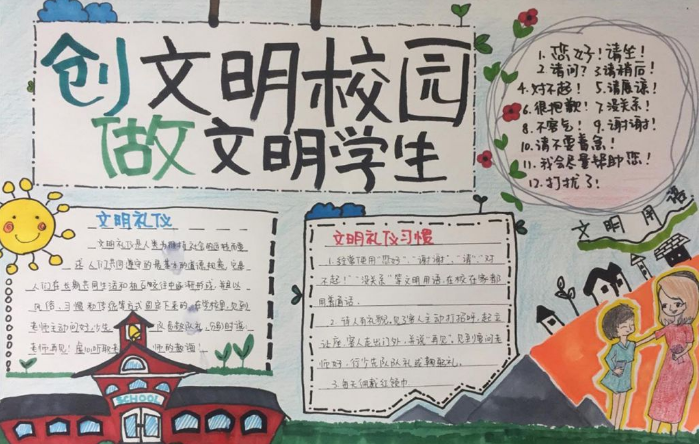 创文明校园
做文明学生
1.您好！请坐！
2.请问？3.请稍后！
4.对不起！ 5.请原谅！
6.很抱歉！ 7.没关系！
8.不客气！ 9.谢谢！
10.请不要着急！
11.我会尽量帮助您！
12.打扰了！
文明用语
文明礼仪
文明礼仪是人类为维持社会的正常而要
人们共同遵守的最基本的道德规范，它是
人们在长期共同生活和相互交往中逐渐形成，并且以
风俗、习惯和传统等方式固定下来的。在学校里，见到
老师主动问好
文明礼仪习惯
1.经常使用“您好”、“谢谢”、“请”、“对
不起！”“没关系”等文明用语，在校在家都
用普通话。
2.待人有礼貌，见了客人主动打招呼，起立
让座，客人走出门外，并说“再见”，见到
师好，行少先队队礼或鞠躬礼。
3.每天佩戴红领巾
SCHOOL